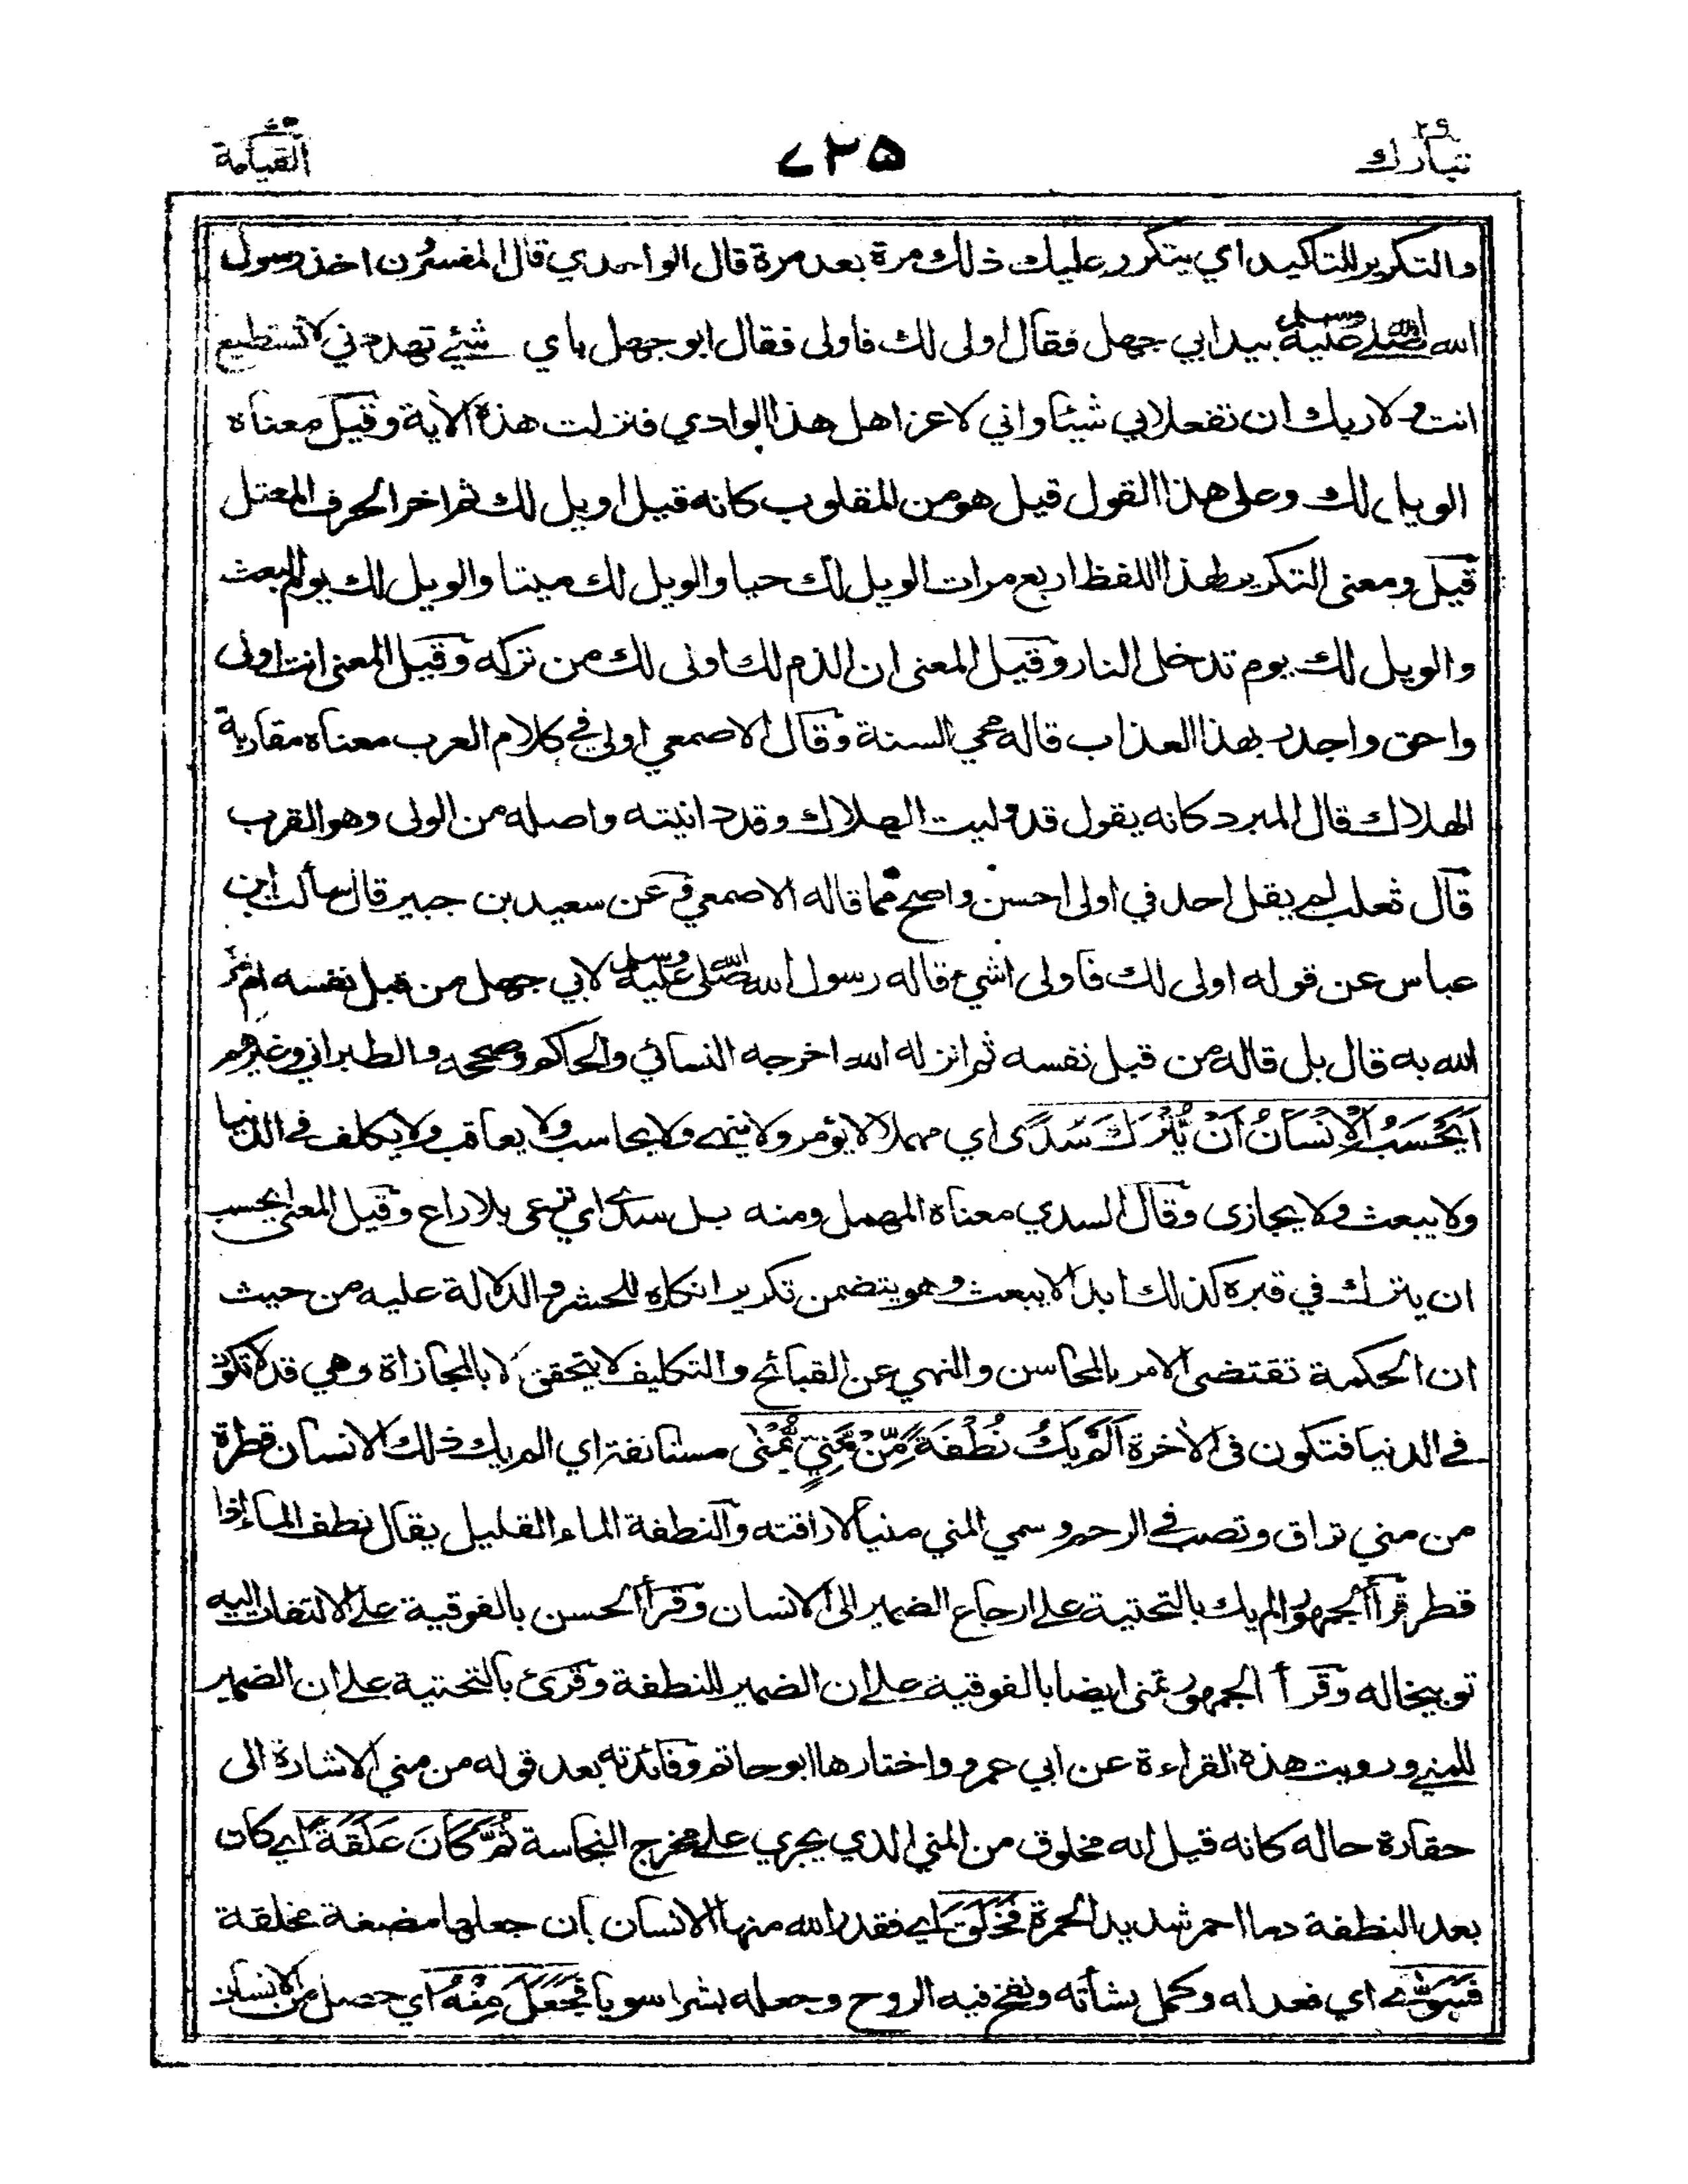 تبارك ٢٩
٧٢٥
القيامة
والتكرير للتاكيد اي يتكرر عليك ذلك مرة بعد مرة قال الواحدي قال المفسرون اخذ رسول
الله صلى الله عليه وسلم بيد ابي جهل فقال اولى لك فاولى فقال ابو جهل باي شئ تهددني لا تستطيع
انت ولا ربك ان تفعلا بي شيئا واني لاعز اهل هذا الوادي فنزلت هذه الآية وقيل معناه
الويل لك وعلى هذا القول قيل هو من المقلوب كانه قيل اويل لك ثم اخر الحرف المعتل
قيل ومعنى التكرير لهذا اللفظ اربع مرات الويل لك حيا والويل لك ميتا والويل لك يوم البعث
والويل لك يوم تدخل النار وقيل المعنى ان الذم لك اولى لك من تركه وقيل المعنى انت اولى
واحق واجدر بهذا العذاب قاله محي السنة وقال الاصمعي اولى في كلام العرب معناه مقاربة
الهلاك قال المبرد كانه يقول قد وليت الهلاك وقد دانيته واصله من الولى وهو القرب
قال ثعلب لم يقل احد في اولى احسن واصح مما قاله الاصمعي وعن سعيد بن جبير قال سألت ابن
عباس عن قوله اولى لك فاولى اشيء قاله رسول الله صلى الله عليه وسلم لابي جهل من قبل نفسه ام امر
الله به قال بل قاله من قبل نفسه ثم انزله الله اخرجه النسائي والحاكم وصححه والطبراني وغيرهم
اَيَحْسَبُ الْاِنْسَانُ اَنْ يُّتْرَكَ سُدًى اي مهملا لا يؤمر ولا ينهى ولا يحاسب ولا يعاقب ولا يكلف في الدنيا
ولا يبعث ولا يجازى وقال السدي معناه المهمل ومنه بل سدى اي ترعى بلا راع وقيل المعنى ايحسب
ان يترك في قبره كذلك ابدا لا يبعث وهو يتضمن تكرير انكاره للحشر والدلالة عليه من حيث
ان الحكمة تقتضى الامر بالمحاسن والنهي عن القبائح والتكليف لا يتحقق الا بالمجازاة وهي قد لا تكون
في الدنيا فتكون فى الآخرة اَلَمْ يَكُ نُطْفَةً مِّنْ مَّنِيٍّ يُّمْنٰى مستانفة اي الم يك ذلك الانسان قطرة
من مني تراق وتصب في الرحم وسمي المني منيا لاراقته والنطفة الماء القليل يقال نطف الماء اذا
قطر قرأ الجمهور الم يك بالتحتية على ارجاع الضمير الى الانسان وقرأ الحسن بالفوقية على الالتفات اليه
توبيخا له وقرأ الجمهور تمنى ايضا بالفوقية على ان الضمير للنطفة وقرئ بالتحتية على ان الضمير
للمني ورويت هذه القراءة عن ابي عمرو واختارها ابو حاتم وفائدته بعد قوله من مني الاشارة الى
حقارة حاله كانه قيل انه مخلوق من المني الذي يجري على مخرج النجاسة ثُمَّ كَانَ عَلَقَةً اي كان
بعد النطفة دما احمر شديد الحمرة فَخَلَقَ اي فقدر الله منها الانسان بان جعلها مضغة مخلقة
فَسَوّٰى اي فعدله وكمل نشأته ونفخ فيه الروح وجعله بشرا سويا فَجَعَلَ مِنْهُ اي حصل من الانسان